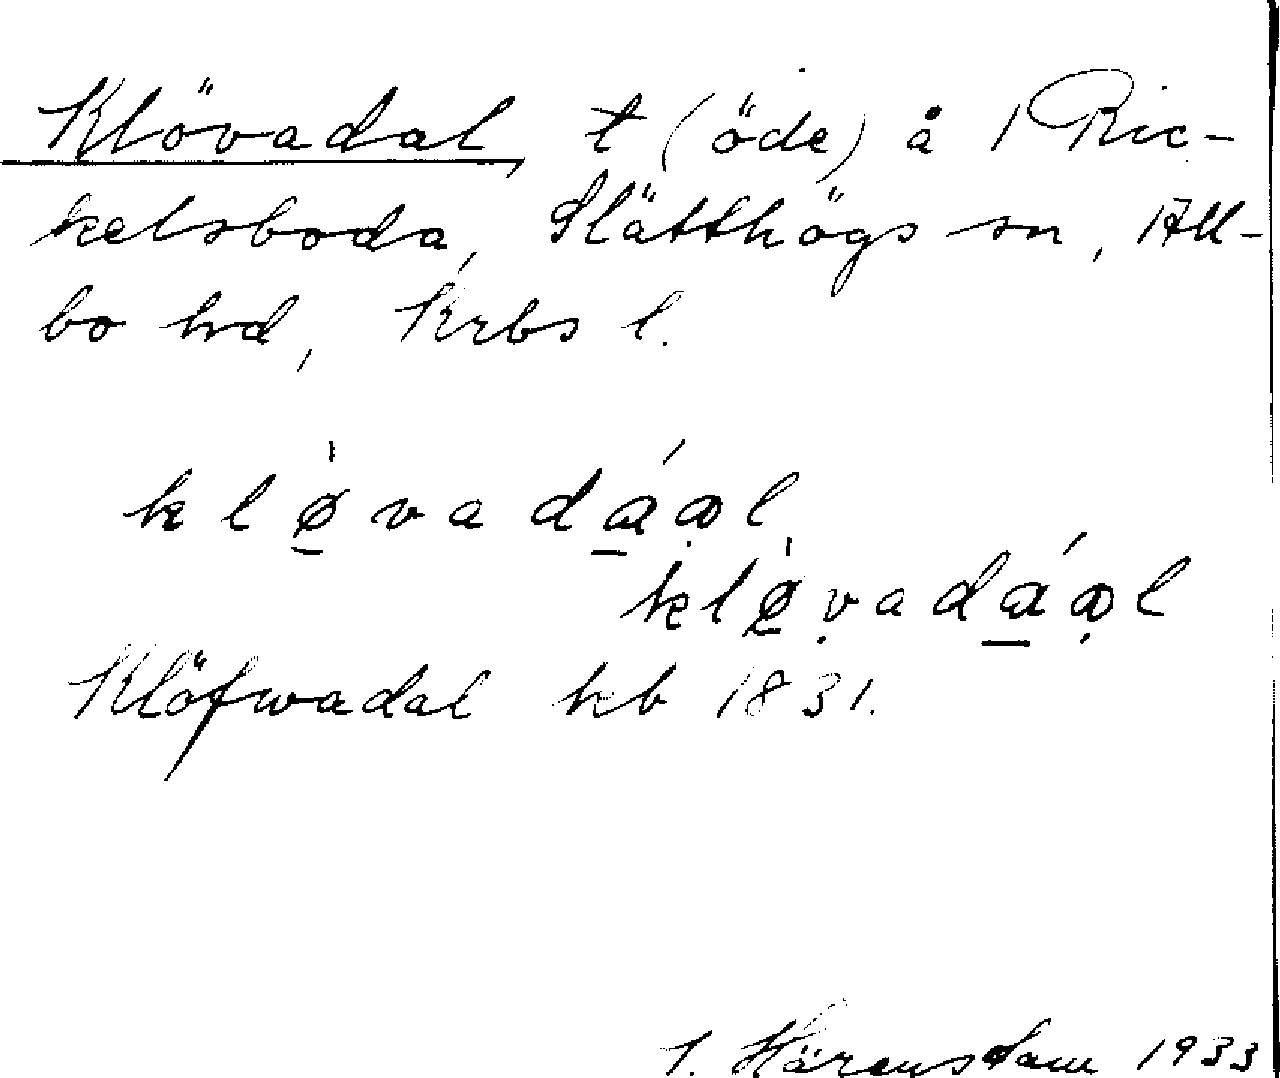 Klövadal, t (öde) å Ric-
kelsboda, Slätthögs sn, All-
bo hd, Krbs l.
klø̱̀vadá̱ɷl
klø̱̀vadá̱ɷl
Klöfwadal kb 1831.
J. Härensdam 1933